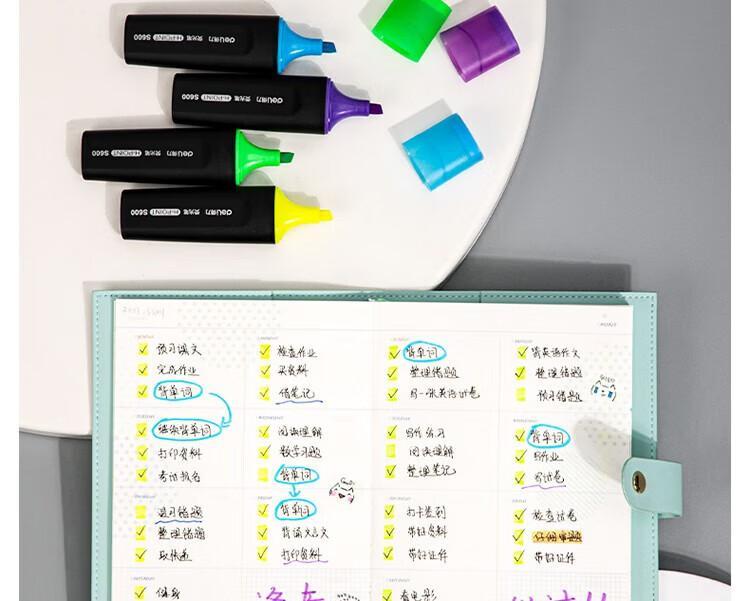 deli得力 荧光笔 HI-POINT S600
deli得力 荧光笔 HI-POINT S600
deli得力 荧光笔 HI-POINT S600
deli得力 荧光笔 HI-POINT S600
预习课文
完成作业
背单词
检查作业
买资料
借笔记
背单词
整理错题
写一张英语试卷
背英语作文
整理错题
预习错题
继续背单词
打印资料
考试报名
阅读理解
数学习题
背单词
写作练习
阅读理解
整理笔记
背单词
写作业
写试卷
复习错题
整理错题
取快递
背单词
背诵文言文
打印资料
打卡签到
带好资料
带好证件
检查试卷
仔细审题
带好证件
健身
看电影